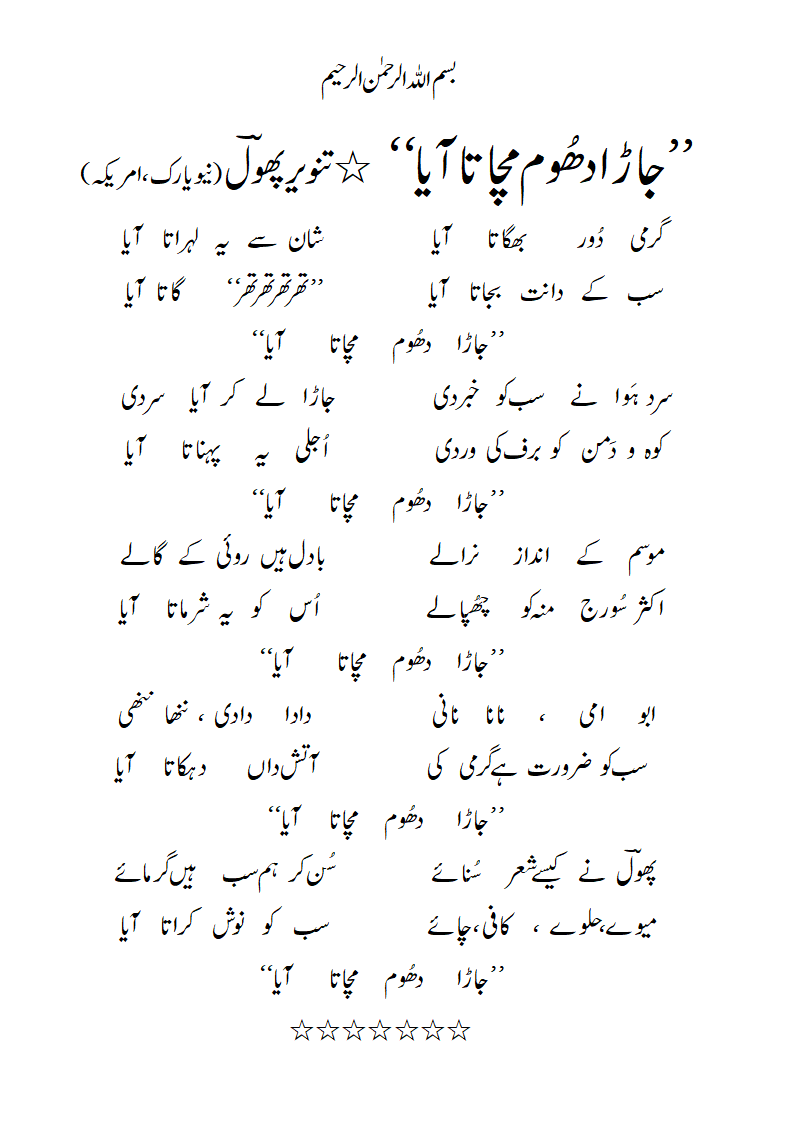 بسم اللہ الرحمٰن الرحیم
’’جاڑا دھُوم مچاتا آیا‘‘ ☆ تنویر پھولؔ (نیویارک، امریکہ)
گرمی دُور بھگاتا آیا شان سے یہ لہراتا آیا
سب کے دانت بجاتا آیا ’’تھرتھرتھرتھر‘‘ گاتا آیا
’’جاڑا دھُوم مچاتا آیا‘‘
سرد ہَوا نے سب کو خبر دی جاڑا لے کر آیا سردی
کوہ و دَمن کو برف کی وردی اُجلی یہ پہناتا آیا
’’جاڑا دھُوم مچاتا آیا‘‘
موسم کے انداز نرالے بادل ہیں روئی کے گالے
اکثر سُورج منہ کو چھُپالے اُس کو یہ شرماتا آیا
’’جاڑا دھُوم مچاتا آیا‘‘
ابو امی ، نانا نانی دادا دادی ، ننھا ننھی
سب کو ضرورت ہے گرمی کی آتش داں دہکاتا آیا
’’جاڑا دھُوم مچاتا آیا‘‘
پھولؔ نے کیسے شعر سُنائے سُن کر ہم سب ہیں گرمائے
میوے، حلوے ، کافی، چائے سب کو نوش کراتا آیا
’’جاڑا دھُوم مچاتا آیا‘‘
☆☆☆☆☆☆☆